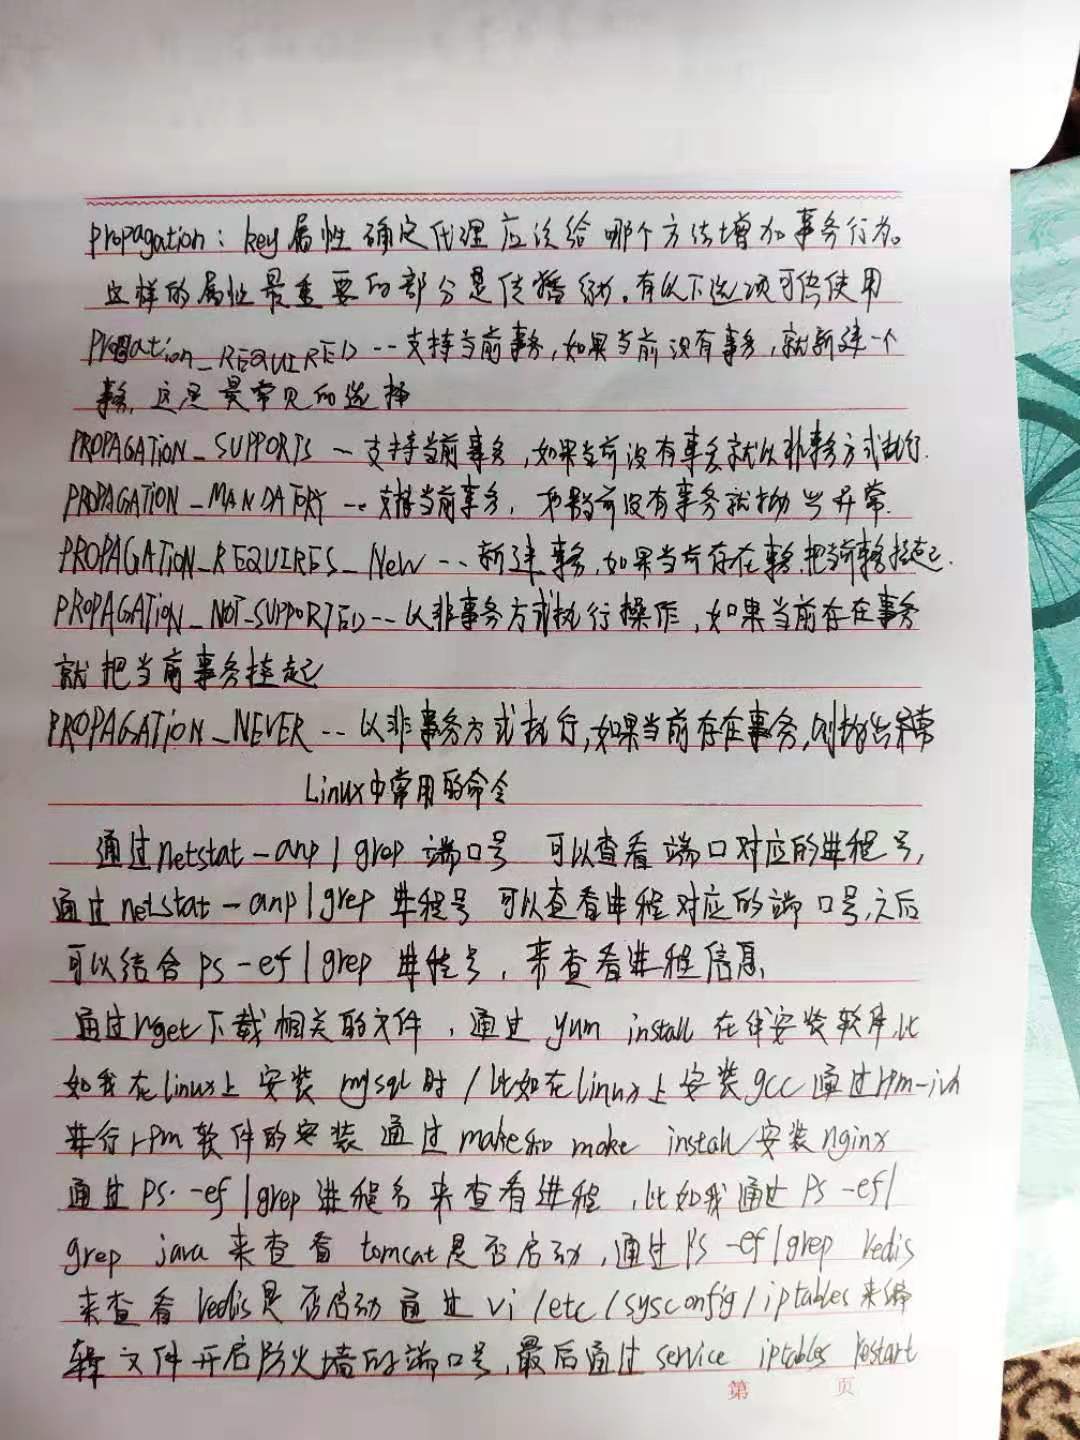 propagation：key属性确定代理应该给哪个方法增加事务行为。
这样的属性最重要的部分是传播行为。有以下选项可供使用
Propagation_REQUIRED--支持当前事务，如果当前没有事务，就新建一个
事务，这是最常见的选择
PROPAGATiON_SUPPORTS--支持当前事务，如果当前没有事务就以非事务方式执行.
PROPAGATiON_MANDATORY--支持当前事务，如果当前没有事务就抛出异常.
PROPAGATiON_REQUIRES_New--新建事务,如果当前存在事务,把当前事务挂起.
PROPAGATiON_NOT_SUPPORTED--以非事务方式执行操作，如果当前存在事务
就把当前事务挂起
PROPAGATiON_NEVER--以非事务方式执行,如果当前存在事务,则抛出异常
Linux中常用的命令
通过netstat-anp|grep 端口号 可以查看端口对应的进程号,
通过netstat-anp|grep 进程号 可以查看进程对应的端口号,之后
可以结合ps-ef|grep 进程号，来查看进程信息,
通过wget下载相关的文件，通过 yum install 在线安装软件,比
如我在linux上安装mysql时/比如在linux上安装gcc通过rpm-ivh
进行rpm软件的安装 通过make和 make install 安装nginx
通过ps -ef|grep进程名来查看进程，比如我通过ps -ef|
grep java来查看tomcat是否启动,通过ps -ef|grep redis
来查看redis是否启动 通过 vi /etc/sysconfig/iptables来编
辑文件开启防火墙的端口号,最后通过service iptables restart
第 页